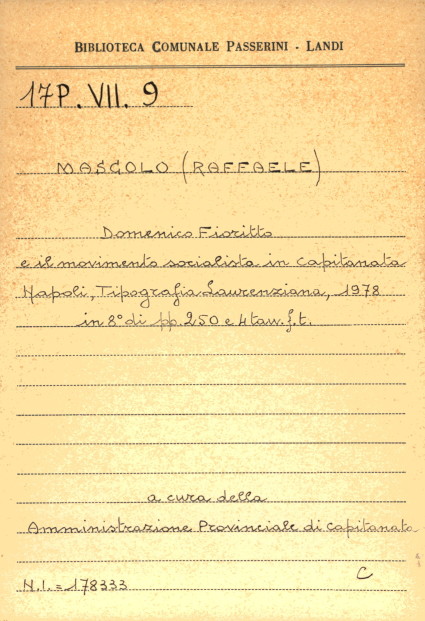 BIBLIOTECA COMUNALE PASSERINI - LANDI
17P. VII. 9
MASCOLO (RAFFAELE)
Domenico Fioritto
e il movimento socialista in Capitanata
Napoli, Tipografia Laurenziana, 1978
in 8° di pp. 250 e 4 tavv. f.t.
a cura della
Amministrazione Provinciale di Capitanata
C
N.I. = 178333